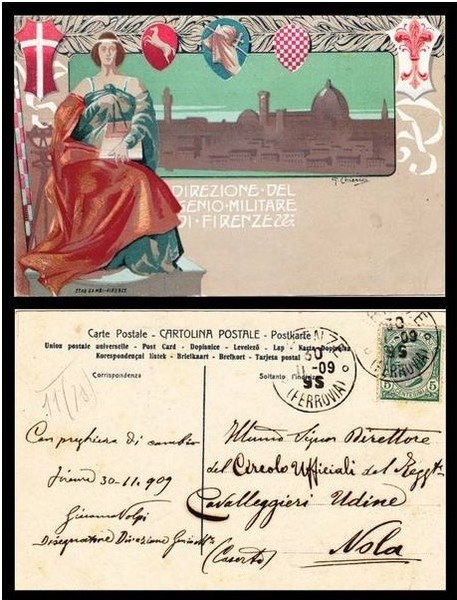 G. Chiarini
DIREZIONE·DEL
GENIO·MILITARE
DI·FIRENZE
STAB. ZAMBI-FIRENZE
Carte Postale - CARTOLINA POSTALE - Postkarte
Union postale universelle - Post Card - Dopisnice - Levelező - Lap - Karta Dopisulna
Korespondençni listek - Briefkaart - Brefkort - Tarjeta postal
Corrispondenza
Soltanto l'indirizzo
30
11-09
5S
(FERROVIA)
30
-09
5S
(FERROVIA)
5 CENTESIMI 5
11/78
Con preghiera di cambio
Firenze 30-11.909
Volpi
Disegnatore Direzione Genio Mre
Illmmo Signor Direttore
del Circolo Ufficiali del Reggto
Cavalleggieri Udine
(Caserta) Nola